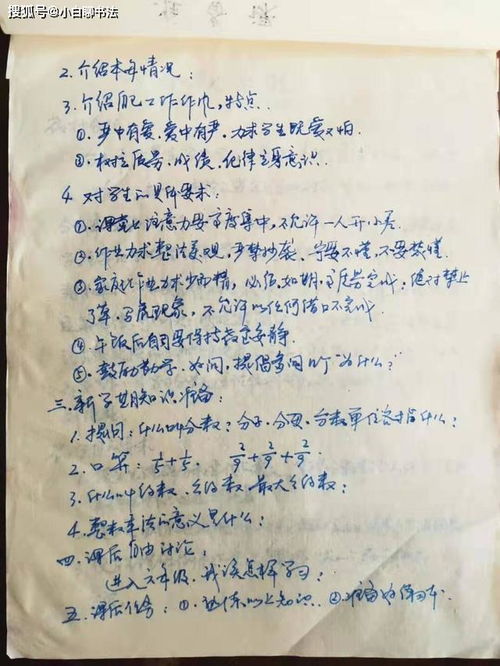 搜狐号@小白聊书法
2. 介绍本每情况：
3. 介绍自己工作作风，特点.
①. 严中有爱，爱中有严，力求学生既爱又怕.
②. 树立质量、成绩、纪律主导意识.
4. 对学生的具体要求：
①. 课堂上注意力要高度集中，不允许一人开小差.
②. 作业力求整洁美观，严禁抄袭、宁要不懂，不要装懂.
③. 家庭作业力求少而精，必须如期、高质量完成，绝对禁止
了草、写虎现象，不允许以任何借口不完成.
④. 午饭后自习要保持教室安静.
⑤. 鼓励勤学、好问，提倡多问几个"为什么？"
三. 新学期知识准备：
1. 提问：什么叫分数？分子、分母、分数单位各指什么？
2. 口算：1/5+1/5. 2/9+2/9+2/9.
3. 什么叫约数、公约数、最大公约数：
4. 整数乘法的意义是什么：
四. 课后自由讨论：
进入六年级，我该怎样学习：
五. 课后任务：①. 以上知识. ②准备好